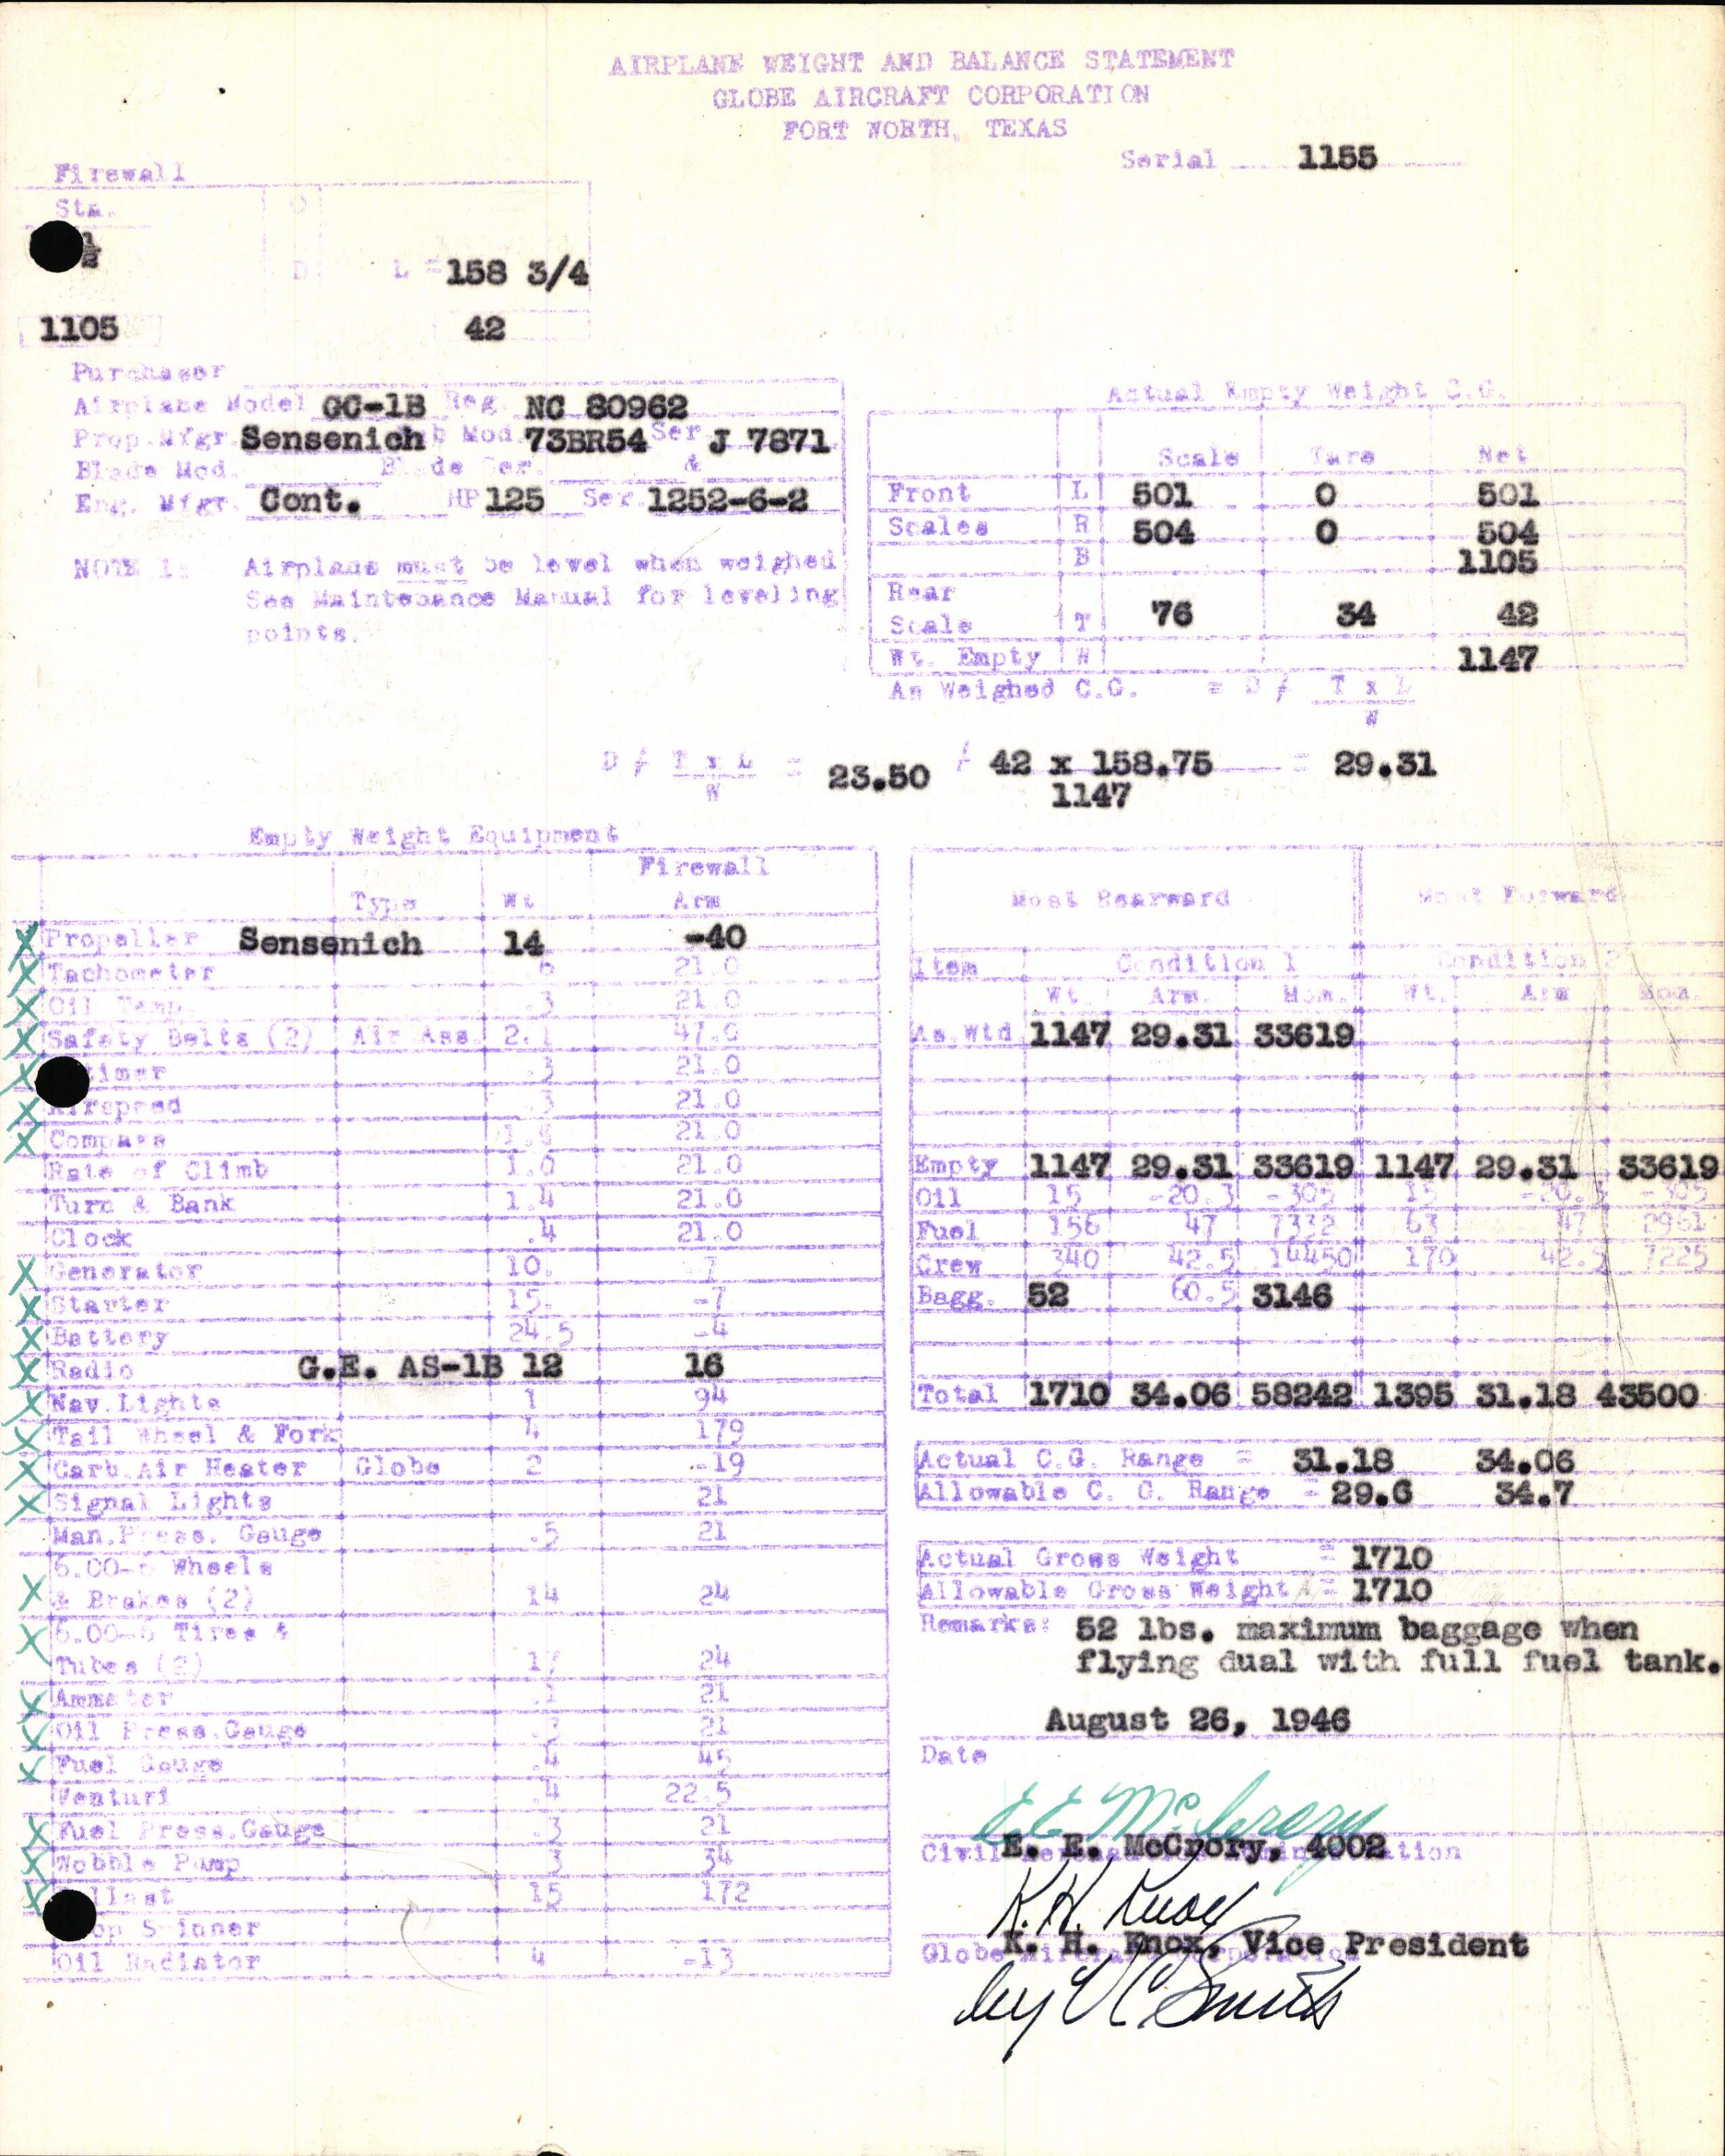 AIRPLANE WEIGHT AND BALANCE STATEMENT
GLOBE AIRCRAFT CORPORATION
FORT WORTH, TEXAS
Serial 1155
Firewall
Sta. O
1/2
D L = 158 3/4
1105 42
Purchaser
Airplane Model GC-1B Reg. NC 80962
Prop.Mfgr. Sensenich Mod. 73BR54 Ser. J 7871
Blade Mod. Blade Ser. &
Eng. Mfgr. Cont. HP 125 Ser. 1252-6-2
NOTE 1: Airplane must be level when weighed
See Maintenance Manual for leveling
points.
Actual Empty Weight C.G.
Scale Tare Net
Front L 501 0 501
Scales R 504 0 504
B 1105
Rear
Scale T 76 34 42
Wt. Empty W 1147
As Weighed C.G. = D / T x L
W
D / T x L = 23.50 / 42 x 158.75 = 29.31
W 1147
Empty Weight Equipment
Firewall
Type Wt Arm
X Propeller Sensenich 14 -40
X Tachometer 21.0
X Oil Temp. .3 21.0
X Safety Belts (2) Air Ass. 2.1 47.0
X .3 21.0
X Airspeed .3 21.0
X Compass 21.0
Rate of Climb 1.0 21.0
Turn & Bank 1.4 21.0
Clock .4 21.0
X Generator 10. -7
X Starter 15. -7
X Battery 24.5 -4
X Radio G.E. AS-1B 12 16
X Nav.Lights 1 94
X Tail Wheel & Fork 4 179
X Carb.Air Heater Globe 2 -19
X Signal Lights 21
Man.Press. Gauge .5 21
6.00-6 Wheels
X & Brakes (2) 14 24
X 6.00-6 Tires &
Tubes (2) 17 24
X Ammeter .1 21
X Oil Press.Gauge 21
X Fuel Gauge .4 45
Venturi .4 22.5
X Fuel Press.Gauge .3 21
X Wobble Pump 3 34
X Ballast 15 172
Prop Spinner
Oil Radiator 4 -13
Most Rearward Most Forward
Item Condition 1 Condition 2
Wt. Arm. Mom. Wt. Arm Mom.
As Wtd 1147 29.31 33619
Empty 1147 29.31 33619 1147 29.31 33619
Oil 15 -20.3 -305 15 -20.3 -305
Fuel 156 47 7332 63 47 2961
Crew 340 42.5 14450 170 42.5 7225
Bagg. 52 60.5 3146
Total 1710 34.06 58242 1395 31.18 43500
Actual C.G. Range = 31.18 34.06
Allowable C. G. Range = 29.6 34.7
Actual Gross Weight = 1710
Allowable Gross Weight = 1710
Remarks: 52 lbs. maximum baggage when
flying dual with full fuel tank.
August 26, 1946
Date
E E McCrory
E. E. McCrory, 4002
Civil Aeronautics Administration
K. H. Knox
K. H. Knox, Vice President
Globe Aircraft Corporation
by Smith